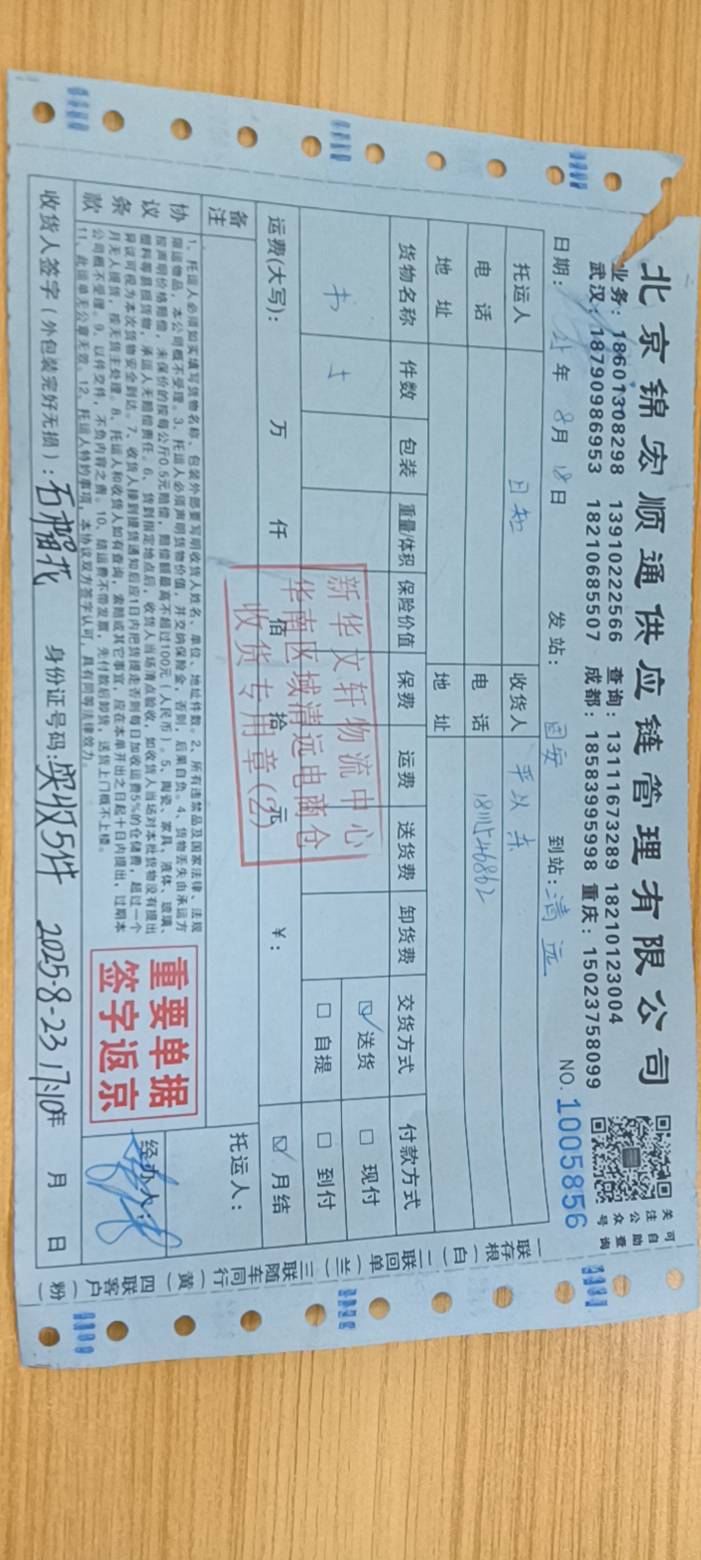 北京锦宏顺通供应链管理有限公司
业务：18601308298 13910222566 查询：13111673289 18210123004
武汉：18790986953 18210685507 成都：18583995998 重庆：15023758099
关注公众号
可自助查询
日期： 年 8月 18日 发站：固安 到站：清远 NO.1005856
托运人 日知 收货人
电话 电话
地址 地址
货物名称 件数 包装 重量/体积 保险价值 保费 运费 送货费 卸货费 交货方式 付款方式
书 ☑ 送货 ☐ 现付
☐ 自提 ☐ 到付
运费(大写)： 万 仟 佰 拾 元 ¥： ☑ 月结
备注
托运人：
新华文轩物流中心
华南区域清远电商仓
收货专用章(2)
协议条款
1、托运人必须如实填写货物名称、包装外部要写明收货人姓名、单位、地址件数。2、所有违禁品及国家法律、法规
限运物品，本公司概不受理。3、托运人必须声明货物价值，并交纳保险金，否则，后果自负。4、货物丢失由承运方
按声明价格赔偿，未保价的按每公斤0.5元赔偿，赔偿额最高不超过100元（人民币）。5、陶瓷、家具、液体、玻璃、
塑料等易损货物，承运人无赔偿责任。6、货到指定地点后，收货人当场清点验收，如收货人当场对本批货物没有提出
异议可视为本次货物安全到达。7、收货人接到提货通知后应1日内把货提走否则每日加收运费5%的仓储费，超过一个
月无人提货，按无货主处理。8、托运人和收货人如有查询，索赔或其它事宜，应在本单开出之日起十日内提出，过期本
公司概不受理。9、以件交件，不负内容之责。10、结运费不带发票，先付款后卸货，送货上门概不上楼。
11、此运单无公章无效。12、托运人特约事项，本协议双方签字认可，具有同等法律效力。
重要单据
签字返京
经办人：
收货人签字（外包装完好无损）： 身份证号码：实收5件 2025-8-23 17:10年 月 日
一联存根（白） 二联回单（兰） 三联随车同行（黄） 四联客户（粉）